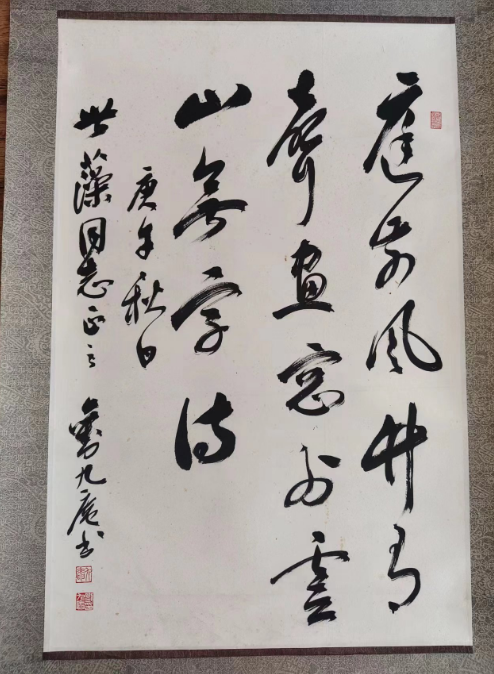 庭前風竹有
聲畫窗外雲
山無字詩
庚午秋日
世藻同志正之 劉九庵書